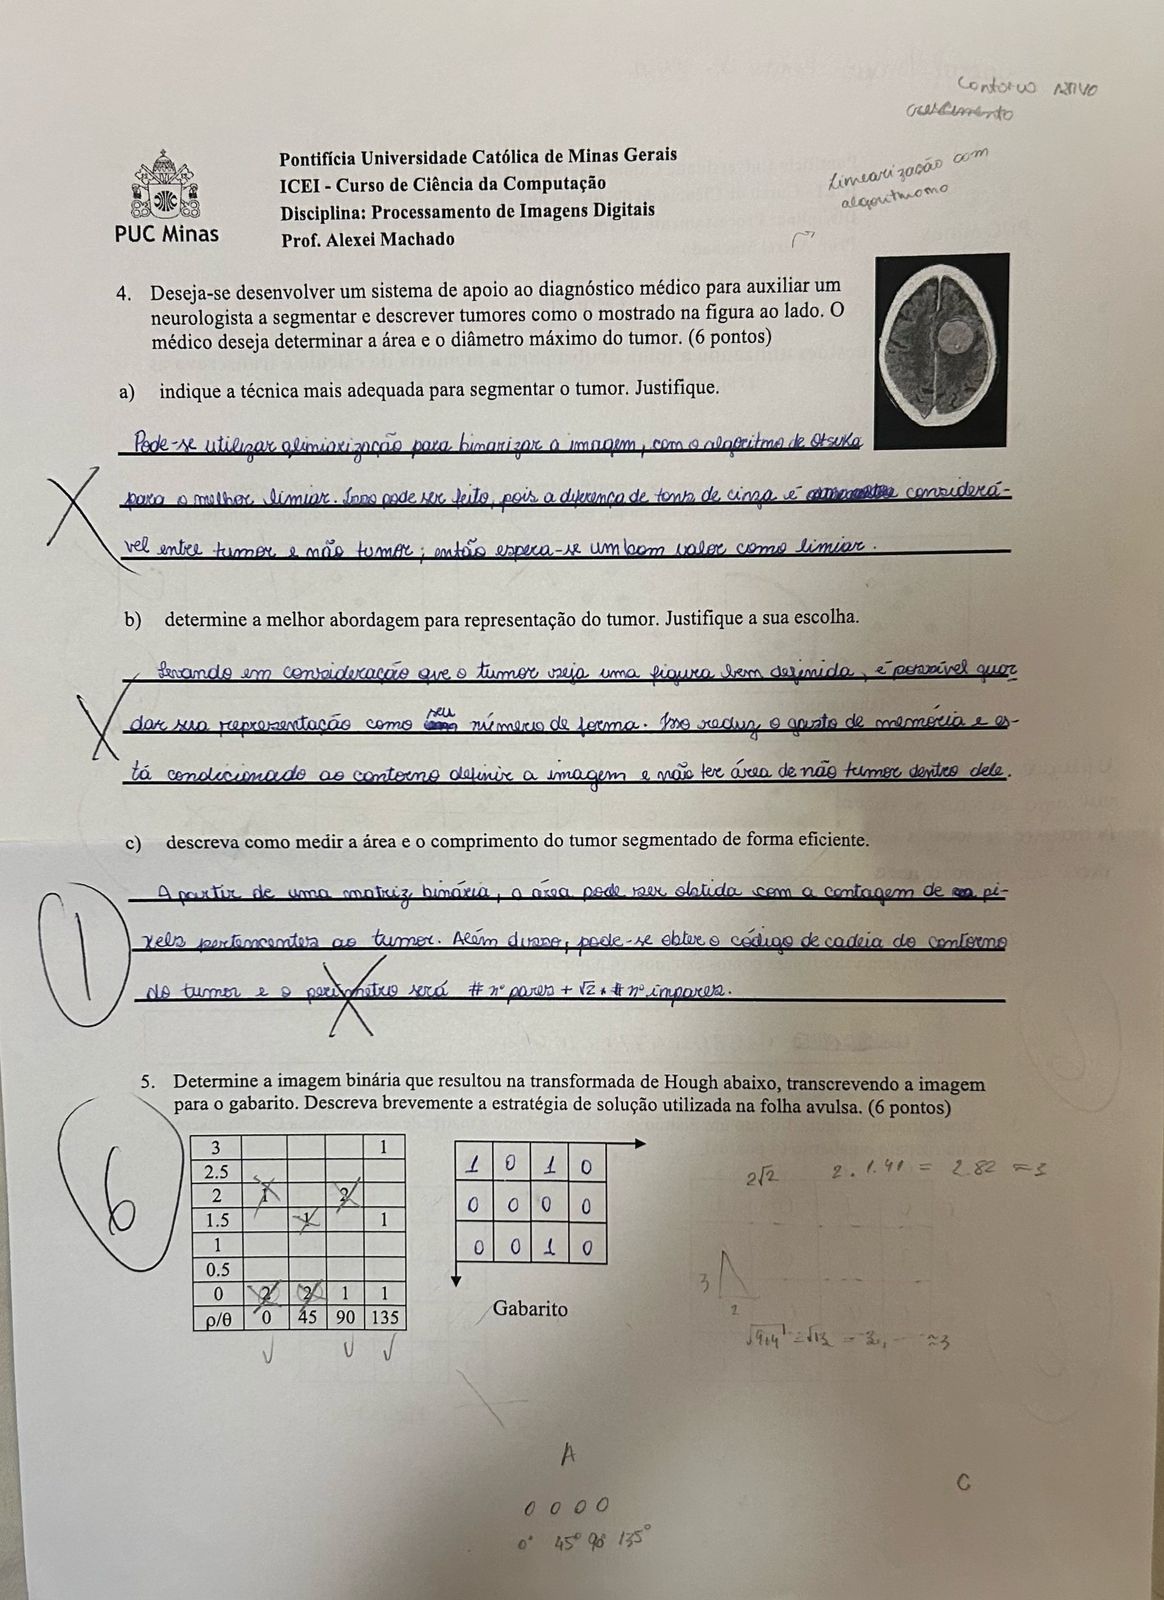 Contorno ATIVO
crescimento
Limearização com
algoritmomo
Pontifícia Universidade Católica de Minas Gerais
ICEI - Curso de Ciência da Computação
Disciplina: Processamento de Imagens Digitais
Prof. Alexei Machado
PUC Minas
4. Deseja-se desenvolver um sistema de apoio ao diagnóstico médico para auxiliar um
neurologista a segmentar e descrever tumores como o mostrado na figura ao lado. O
médico deseja determinar a área e o diâmetro máximo do tumor. (6 pontos)
a) indique a técnica mais adequada para segmentar o tumor. Justifique.
Pode-se utilizar a limiarização para binarizar a imagem, com o algoritmo de Otsuka
para o melhor limiar. Isso pode ser feito, pois a diferença de tons de cinza é considerá-
vel entre tumor e não tumor; então espera-se um bom valor como limiar.
b) determine a melhor abordagem para representação do tumor. Justifique a sua escolha.
Levando em consideração que o tumor seja uma figura bem definida, é possível guar
dar sua representação como seu número de forma. Isso reduz o gasto de memória e es-
tá condicionado ao contorno definir a imagem e não ter área de não tumor dentro dele.
c) descreva como medir a área e o comprimento do tumor segmentado de forma eficiente.
A partir de uma matriz binária, a área pode ser obtida com a contagem de pi-
xels pertencentes ao tumor. Além disso, pode-se obter o código de cadeia do contorno
do tumor e o perímetro será # nº pares + √2 * # nº impares.
1
5. Determine a imagem binária que resultou na transformada de Hough abaixo, transcrevendo a imagem
para o gabarito. Descreva brevemente a estratégia de solução utilizada na folha avulsa. (6 pontos)
6
3 1
2.5
2 1 2
1.5 1 1
1
0.5
0 2 2 1 1
ρ/θ 0 45 90 135
1 0 1 0
0 0 0 0
0 0 1 0
Gabarito
2√2 2 . 1.41 = 2.82 ≈ 3
3
2
√9+4 = √13 = 3, ... ≈3
A
C
0 0 0 0
0° 45° 90° 135°